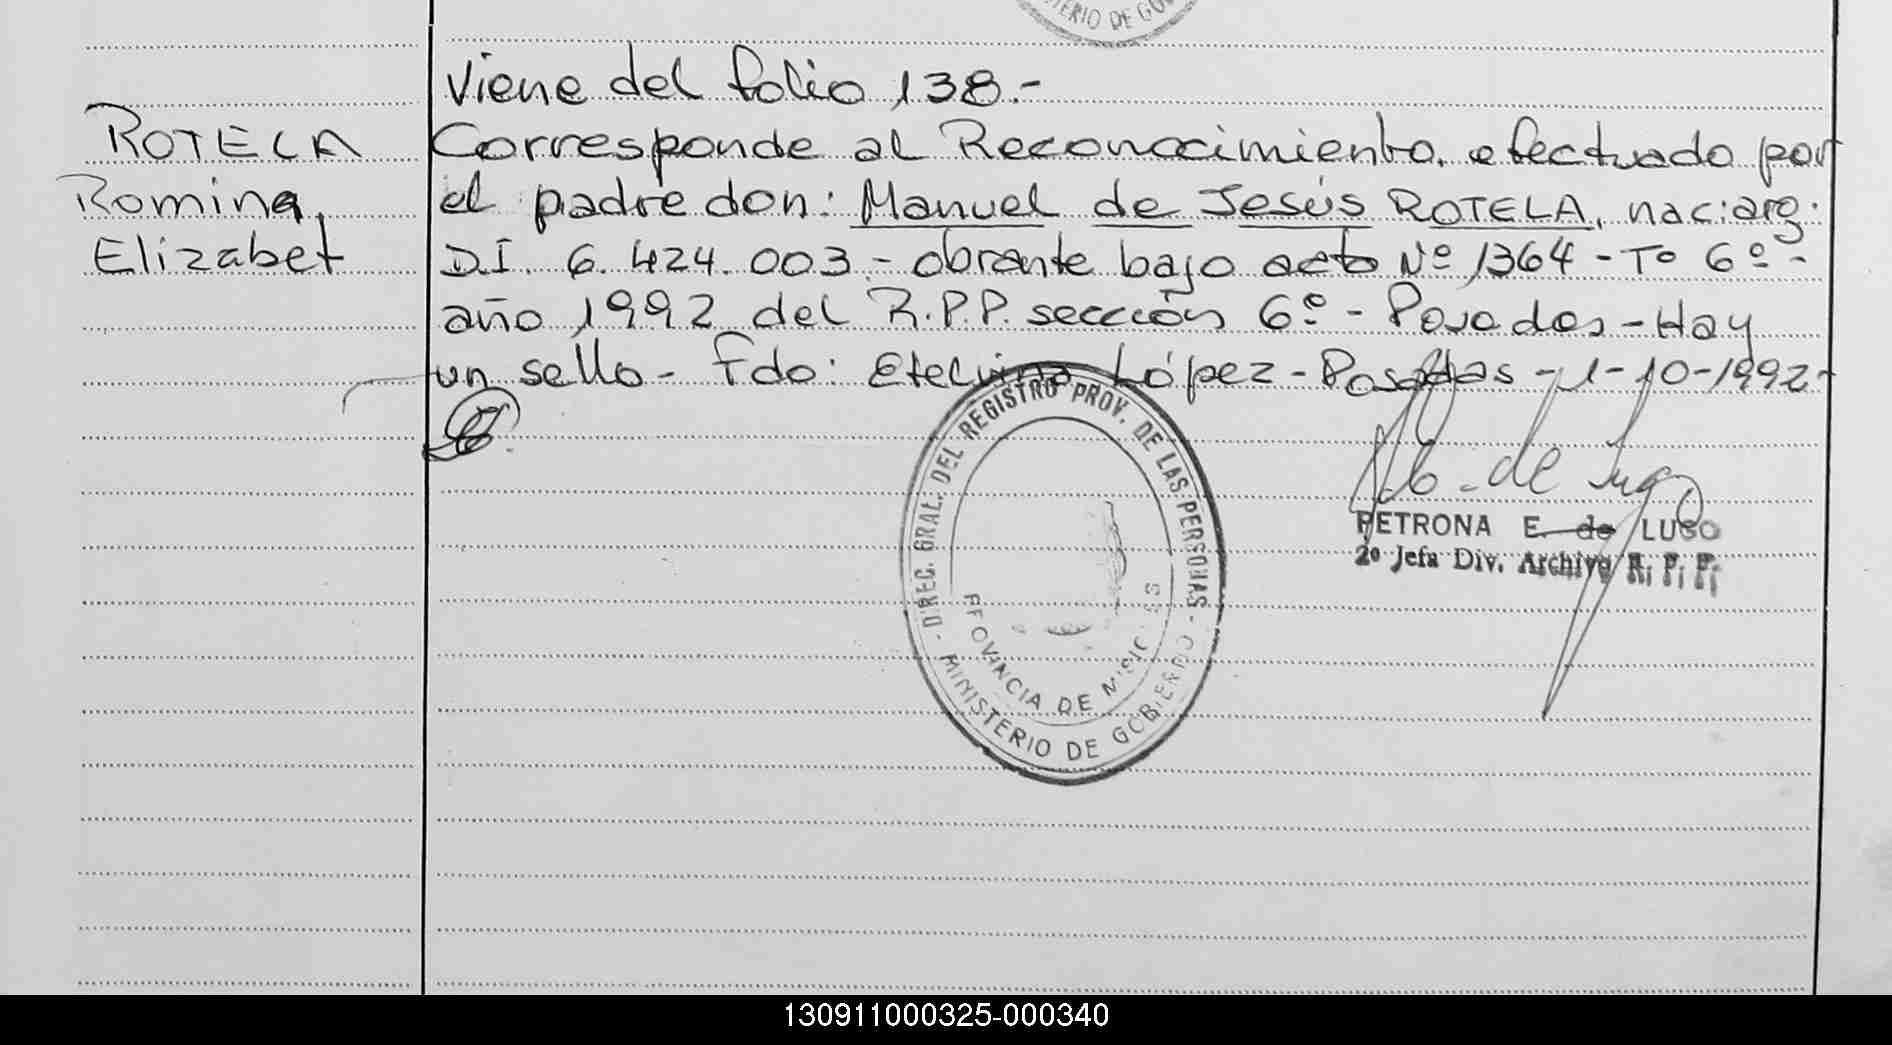 TERIO DE GOB
Viene del folio 138.-
ROTELA
Romina,
Elizabet
Corresponde al Reconocimiento. efectuado por
el padre don: Manuel de Jesús ROTELA, nac: arg:
D.I. 6.424.003.- obrante bajo acto Nº 1364 - Tº 6º -
año 1992 del R.P.P. sección 6º - Posadas - Hay
un sello - Fdo: Etelvina López - Posadas - 1-10-1992-
- DIREC. GRAL. DEL REGISTRO PROV. DE LAS PERSONAS -
MINISTERIO DE GOBIERNO
PROVINCIA DE MISIONES
de Lugo
PETRONA E. de LUGO
2º Jefa Div. Archivo R. P. P.
130911000325-000340